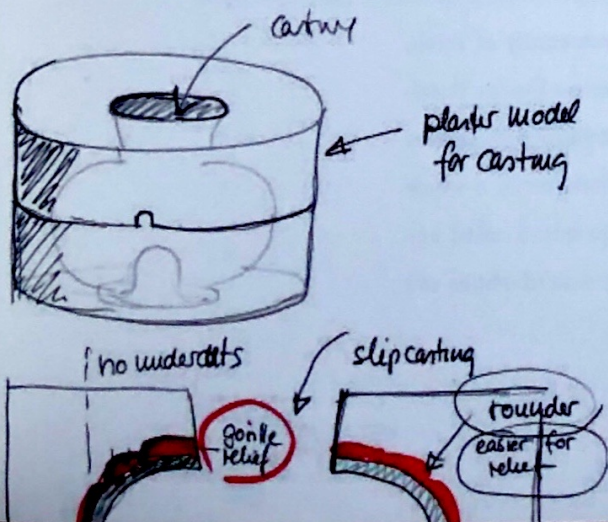 casting
plaster model
for casting
no undercuts
slipcasting
relief
rounder
easier for
relief